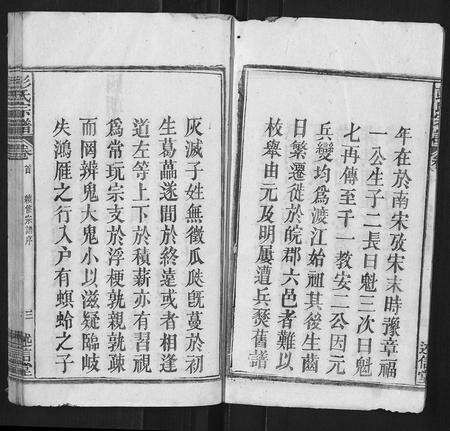 年在於南宋攷宋末時豫章福
一公生子二長曰魁三次曰魁
七再傳至千一教安二公因元
兵變均爲渡江始祖其後生齒
日繁遷徙於皖郡六邑者難以
枚舉由元及明屢遭兵燹舊譜
灰滅子姓無徵瓜瓞旣蔓於初
生葛藟遂間於終遠或者相逢
道左等上下於積薪亦有習視
爲常玩宗支於浮梗孰親孰疎
而罔辨鬼大鬼小以滋疑臨岐
失鴻雁之行入戶有螟蛉之子
彭氏宗譜
卷首
續修宗譜序
三
述信堂